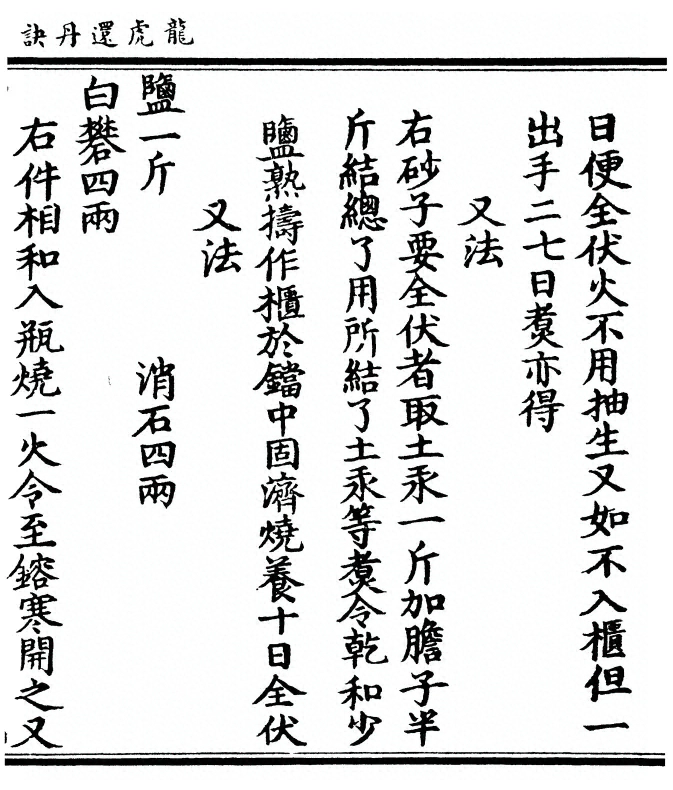 龍虎還丹訣
日便全伏火不用抽生又如不入櫃但一
出手二七日煑亦得
又法
右砂子要全伏者取土汞一斤加膽子半
斤結總了用所結了土汞等煑令乾和少
鹽熟擣作櫃於鐺中固濟燒養十日全伏
又法
鹽一斤　消石四兩
白礬四兩
右件相和入瓶燒一火令至鎔寒開之又